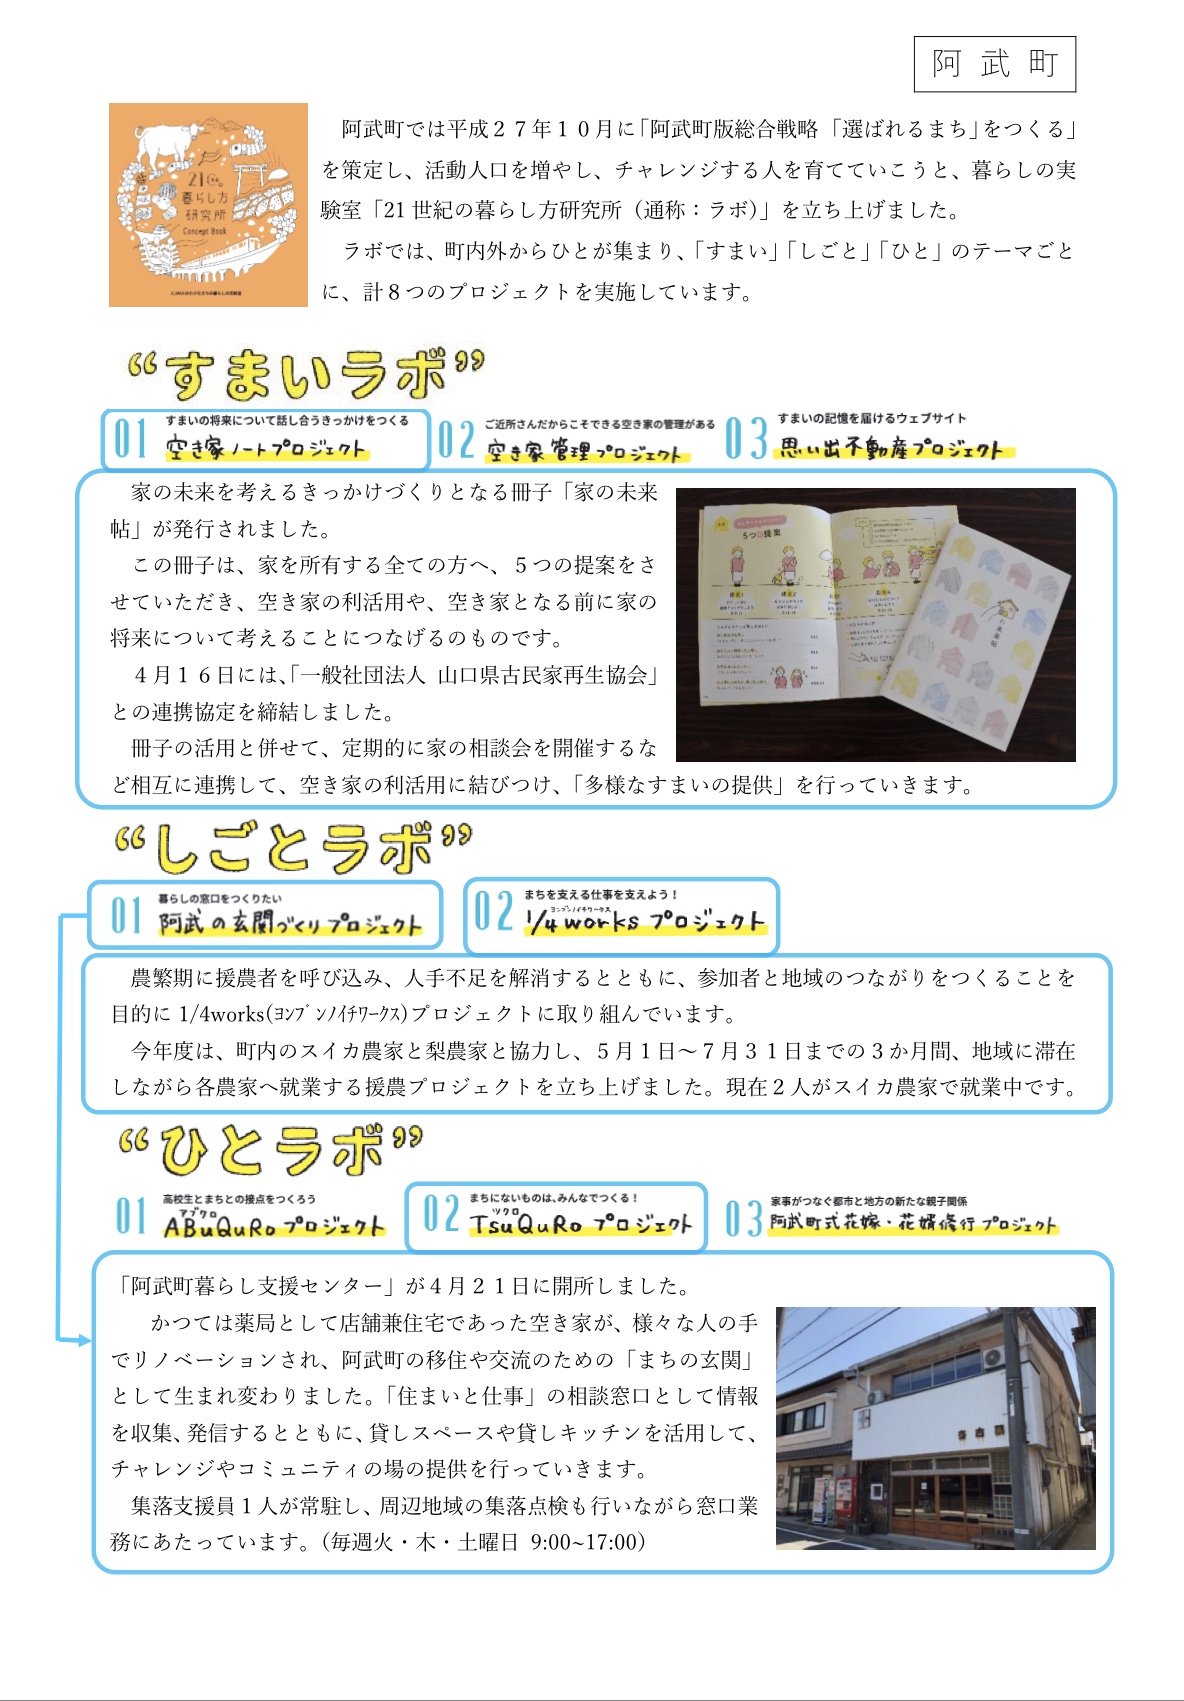 阿武町
21世紀の
暮らし方
研究所
Concept Book
阿武町では平成２７年１０月に「阿武町版総合戦略「選ばれるまち」をつくる」
を策定し、活動人口を増やし、チャレンジする人を育てていこうと、暮らしの実
験室「21 世紀の暮らし方研究所（通称：ラボ）」を立ち上げました。
ラボでは、町内外からひとが集まり、「すまい」「しごと」「ひと」のテーマごと
に、計８つのプロジェクトを実施しています。
“すまいラボ”
01 すまいの将来について話し合うきっかけをつくる
空き家ノートプロジェクト
02 ご近所さんだからこそできる空き家の管理がある
空き家管理プロジェクト
03 すまいの記憶を届けるウェブサイト
思い出不動産プロジェクト
家の未来を考えるきっかけづくりとなる冊子「家の未来
帖」が発行されました。
この冊子は、家を所有する全ての方へ、５つの提案をさ
せていただき、空き家の利活用や、空き家となる前に家の
将来について考えることにつなげるのものです。
４月１６日には、「一般社団法人 山口県古民家再生協会」
との連携協定を締結しました。
冊子の活用と併せて、定期的に家の相談会を開催するな
ど相互に連携して、空き家の利活用に結びつけ、「多様なすまいの提供」を行っていきます。
5つの提案
の未来帖
“しごとラボ”
01 暮らしの窓口をつくりたい
阿武の玄関づくりプロジェクト
02 まちを支える仕事を支えよう！
ヨンブンノイチワークス
1/4works プロジェクト
農繁期に援農者を呼び込み、人手不足を解消するとともに、参加者と地域のつながりをつくることを
目的に 1/4works(ﾖﾝﾌﾞﾝﾉｲﾁﾜｰｸｽ)プロジェクトに取り組んでいます。
今年度は、町内のスイカ農家と梨農家と協力し、５月１日～７月３１日までの３か月間、地域に滞在
しながら各農家へ就業する援農プロジェクトを立ち上げました。現在２人がスイカ農家で就業中です。
“ひとラボ”
01 高校生とまちとの接点をつくろう
アブクロ
ABuQuRo プロジェクト
02 まちにないものは、みんなでつくる！
ツクロ
TsuQuRo プロジェクト
03 家事がつなぐ都市と地方の新たな親子関係
阿武町式花嫁・花婿修行プロジェクト
「阿武町暮らし支援センター」が４月２１日に開所しました。
かつては薬局として店舗兼住宅であった空き家が、様々な人の手
でリノベーションされ、阿武町の移住や交流のための「まちの玄関」
として生まれ変わりました。「住まいと仕事」の相談窓口として情報
を収集、発信するとともに、貸しスペースや貸しキッチンを活用して、
チャレンジやコミュニティの場の提供を行っていきます。
集落支援員１人が常駐し、周辺地域の集落点検も行いながら窓口業
務にあたっています。（毎週火・木・土曜日 9:00~17:00）